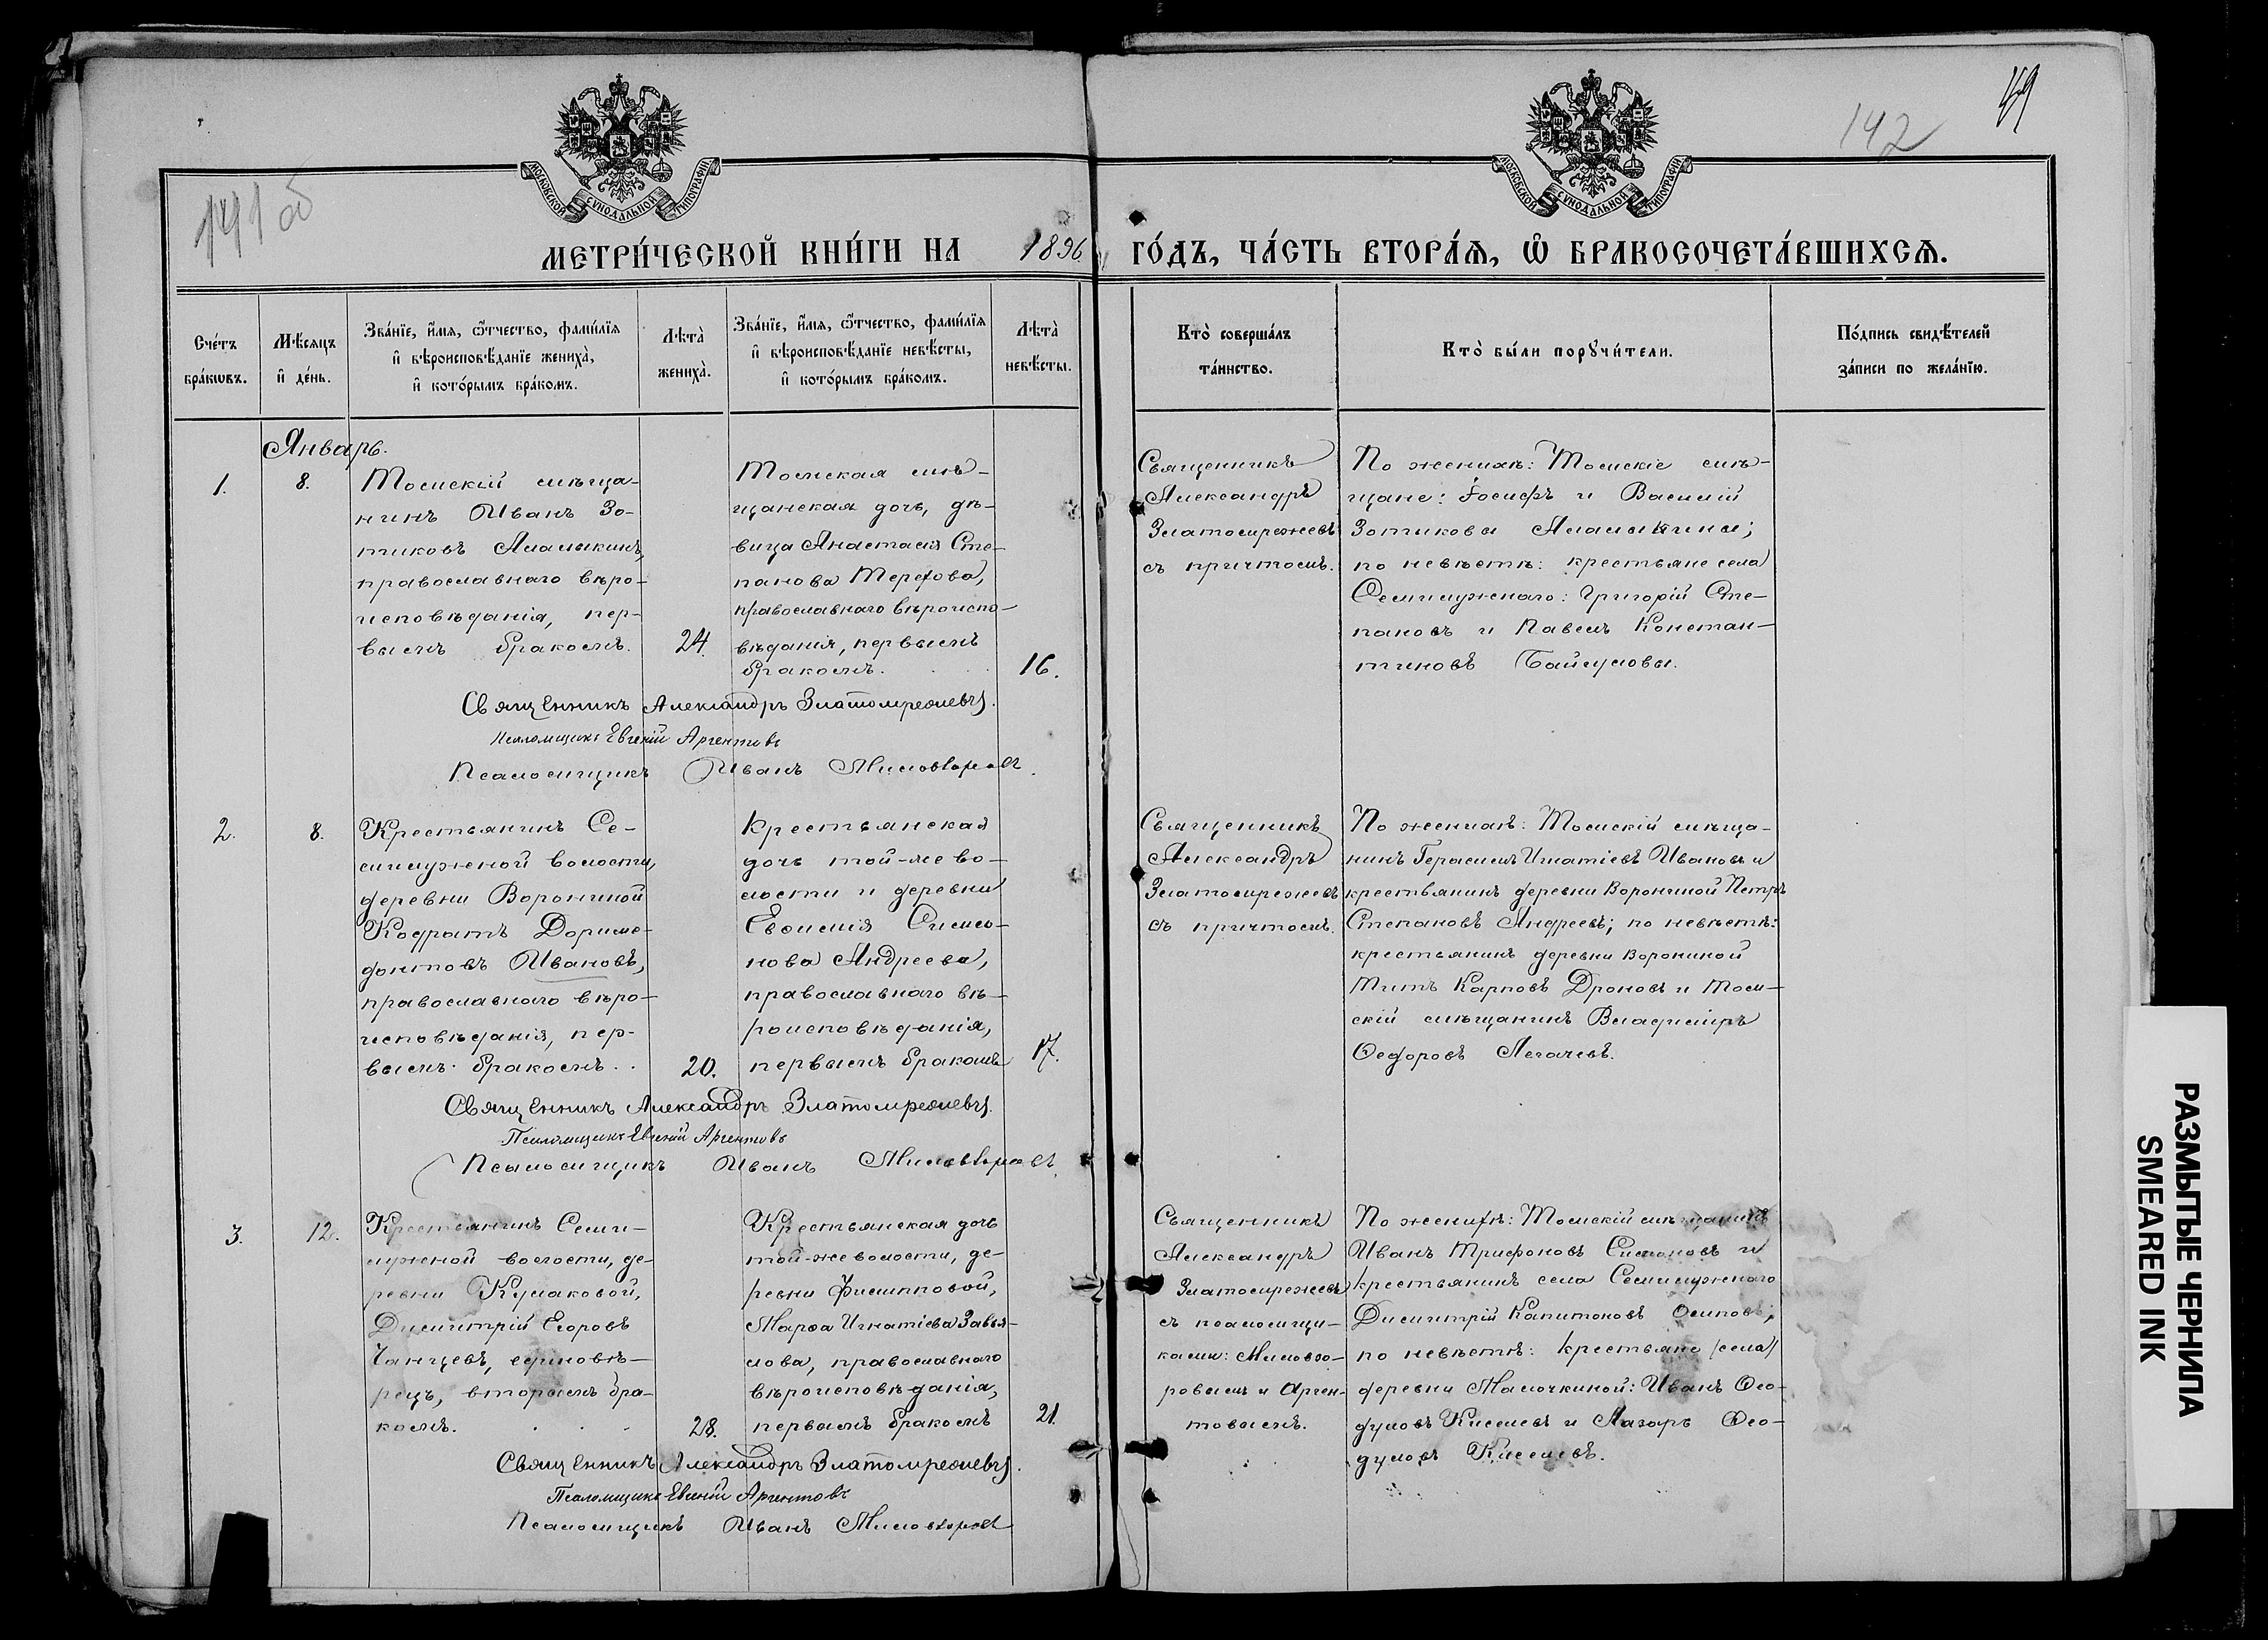 141 об
142
49
МОСКОВСКОЙ СѴНОДАЛЬНОЙ ТИПОГРАФІИ
МОСКОВСКОЙ СѴНОДАЛЬНОЙ ТИПОГРАФІИ
МЕТРИ́ЧЕСКОЙ КНИ́ГИ НА 1896 ГО́ДЪ, ЧА́СТЬ ВТОРА́Я, Ѡ БРАКОСОЧЕТА́ВШИХСЯ.
Сче́тъ
бра́кѡвъ.
Мѣ́сяцъ
и҆ де́нь.
Зва́нїе, и҆́мя, ѻ҆́тчество, фами́лїя
и҆ вѣроисповѣ́данїе жениха̀,
и҆ кото́рымъ бра́комъ.
Лѣта̀
жениха̀.
Зва́нїе, и҆́мя, ѻ҆́тчество, фами́лїя
и҆ вѣроисповѣ́данїе невѣ́сты,
и҆ кото́рымъ бра́комъ.
Лѣта̀
невѣ́сты.
Кто̀ соверша́лъ
та́инство.
Кто̀ бы́ли порꙋчи́тели.
По́дпись свидѣ́телей
за́писи по жела́нїю.
Январь.
1.
8.
Томскій мѣща-
нинъ Иванъ Зо-
тиковъ Аламкинъ,
православнаго вѣро-
исповѣданія, пер-
вымъ бракомъ.
24.
Томская мѣ-
щанская дочь, дѣ-
вица Анастасія Сте-
панова Терехова,
православнаго вѣроиспо-
вѣданія, первымъ
бракомъ.
16.
Священникъ
Александръ
Златомрежевъ
съ причтомъ.
По женихѣ: Томскіе мѣ-
щане: Іосифъ и Василій
Зотиковы Аламкины;
по невѣстѣ: крестьяне села
Семилужнаго: Григорій Сте-
пановъ и Павелъ Констан-
тиновъ Байгуловы.
Священникъ Александръ Златомрежевъ.
Псаломщикъ Евгеній Аргентовъ
Псаломщикъ Иванъ Миловзоровъ.
2.
8.
Крестьянинъ Се-
милужной волости,
деревни Ворониной
Кодратъ Дориме-
донтовъ Ивановъ,
православнаго вѣро-
исповѣданія, пер-
вымъ бракомъ.
20.
Крестьянская
дочь той-же во-
лости и деревни
Евѳимія Симео-
нова Андреева,
православнаго вѣ-
роисповѣданія,
первымъ бракомъ
17.
Священникъ
Александръ
Златомрежевъ
съ причтомъ.
По женихѣ: Томскій мѣща-
нинъ Герасимъ Игнатіевъ Ивановъ и
крестьянинъ деревни Ворониной Петръ
Степановъ Андреевъ; по невѣстѣ:
крестьянинъ деревни Ворониной
Титъ Карповъ Дроновъ и Том-
скій мѣщанинъ Владиміръ
Ѳедоровъ Легачевъ.
Священникъ Александръ Златомрежевъ.
Псаломщикъ Евгеній Аргентовъ
Псаломщикъ Иванъ Миловзоровъ.
3.
12.
Крестьянинъ Семи-
лужной волости, де-
ревни Кулаковой,
Димитрій Егоровъ
Чанцевъ, единовѣ-
рецъ, вторымъ бра-
комъ.
28.
Крестьянская дочь
той-же волости, де-
ревни Филипповой,
Марѳа Игнатіева Завья-
лова, православнаго
вѣроисповѣданія,
первымъ бракомъ
21.
Священникъ
Александръ
Златомрежевъ
съ псаломщи-
ками: Миловзо-
ровымъ и Арген-
товымъ.
По женихѣ: Томскій мѣщанинъ
Иванъ Трифоновъ Симоновъ и
крестьянинъ села Семилужнаго
Димитрій Капитоновъ Осиповъ;
по невѣстѣ: крестьяне /села/
деревни Малочкиной: Иванъ Ѳео-
дуловъ Киселевъ и Лазарь Ѳео-
дуловъ Киселевъ.
Священникъ Александръ Златомрежевъ.
Псаломщикъ Евгеній Аргентовъ
Псаломщикъ Иванъ Миловзоровъ
РАЗМЫТЫЕ ЧЕРНИЛА
SMEARED INK